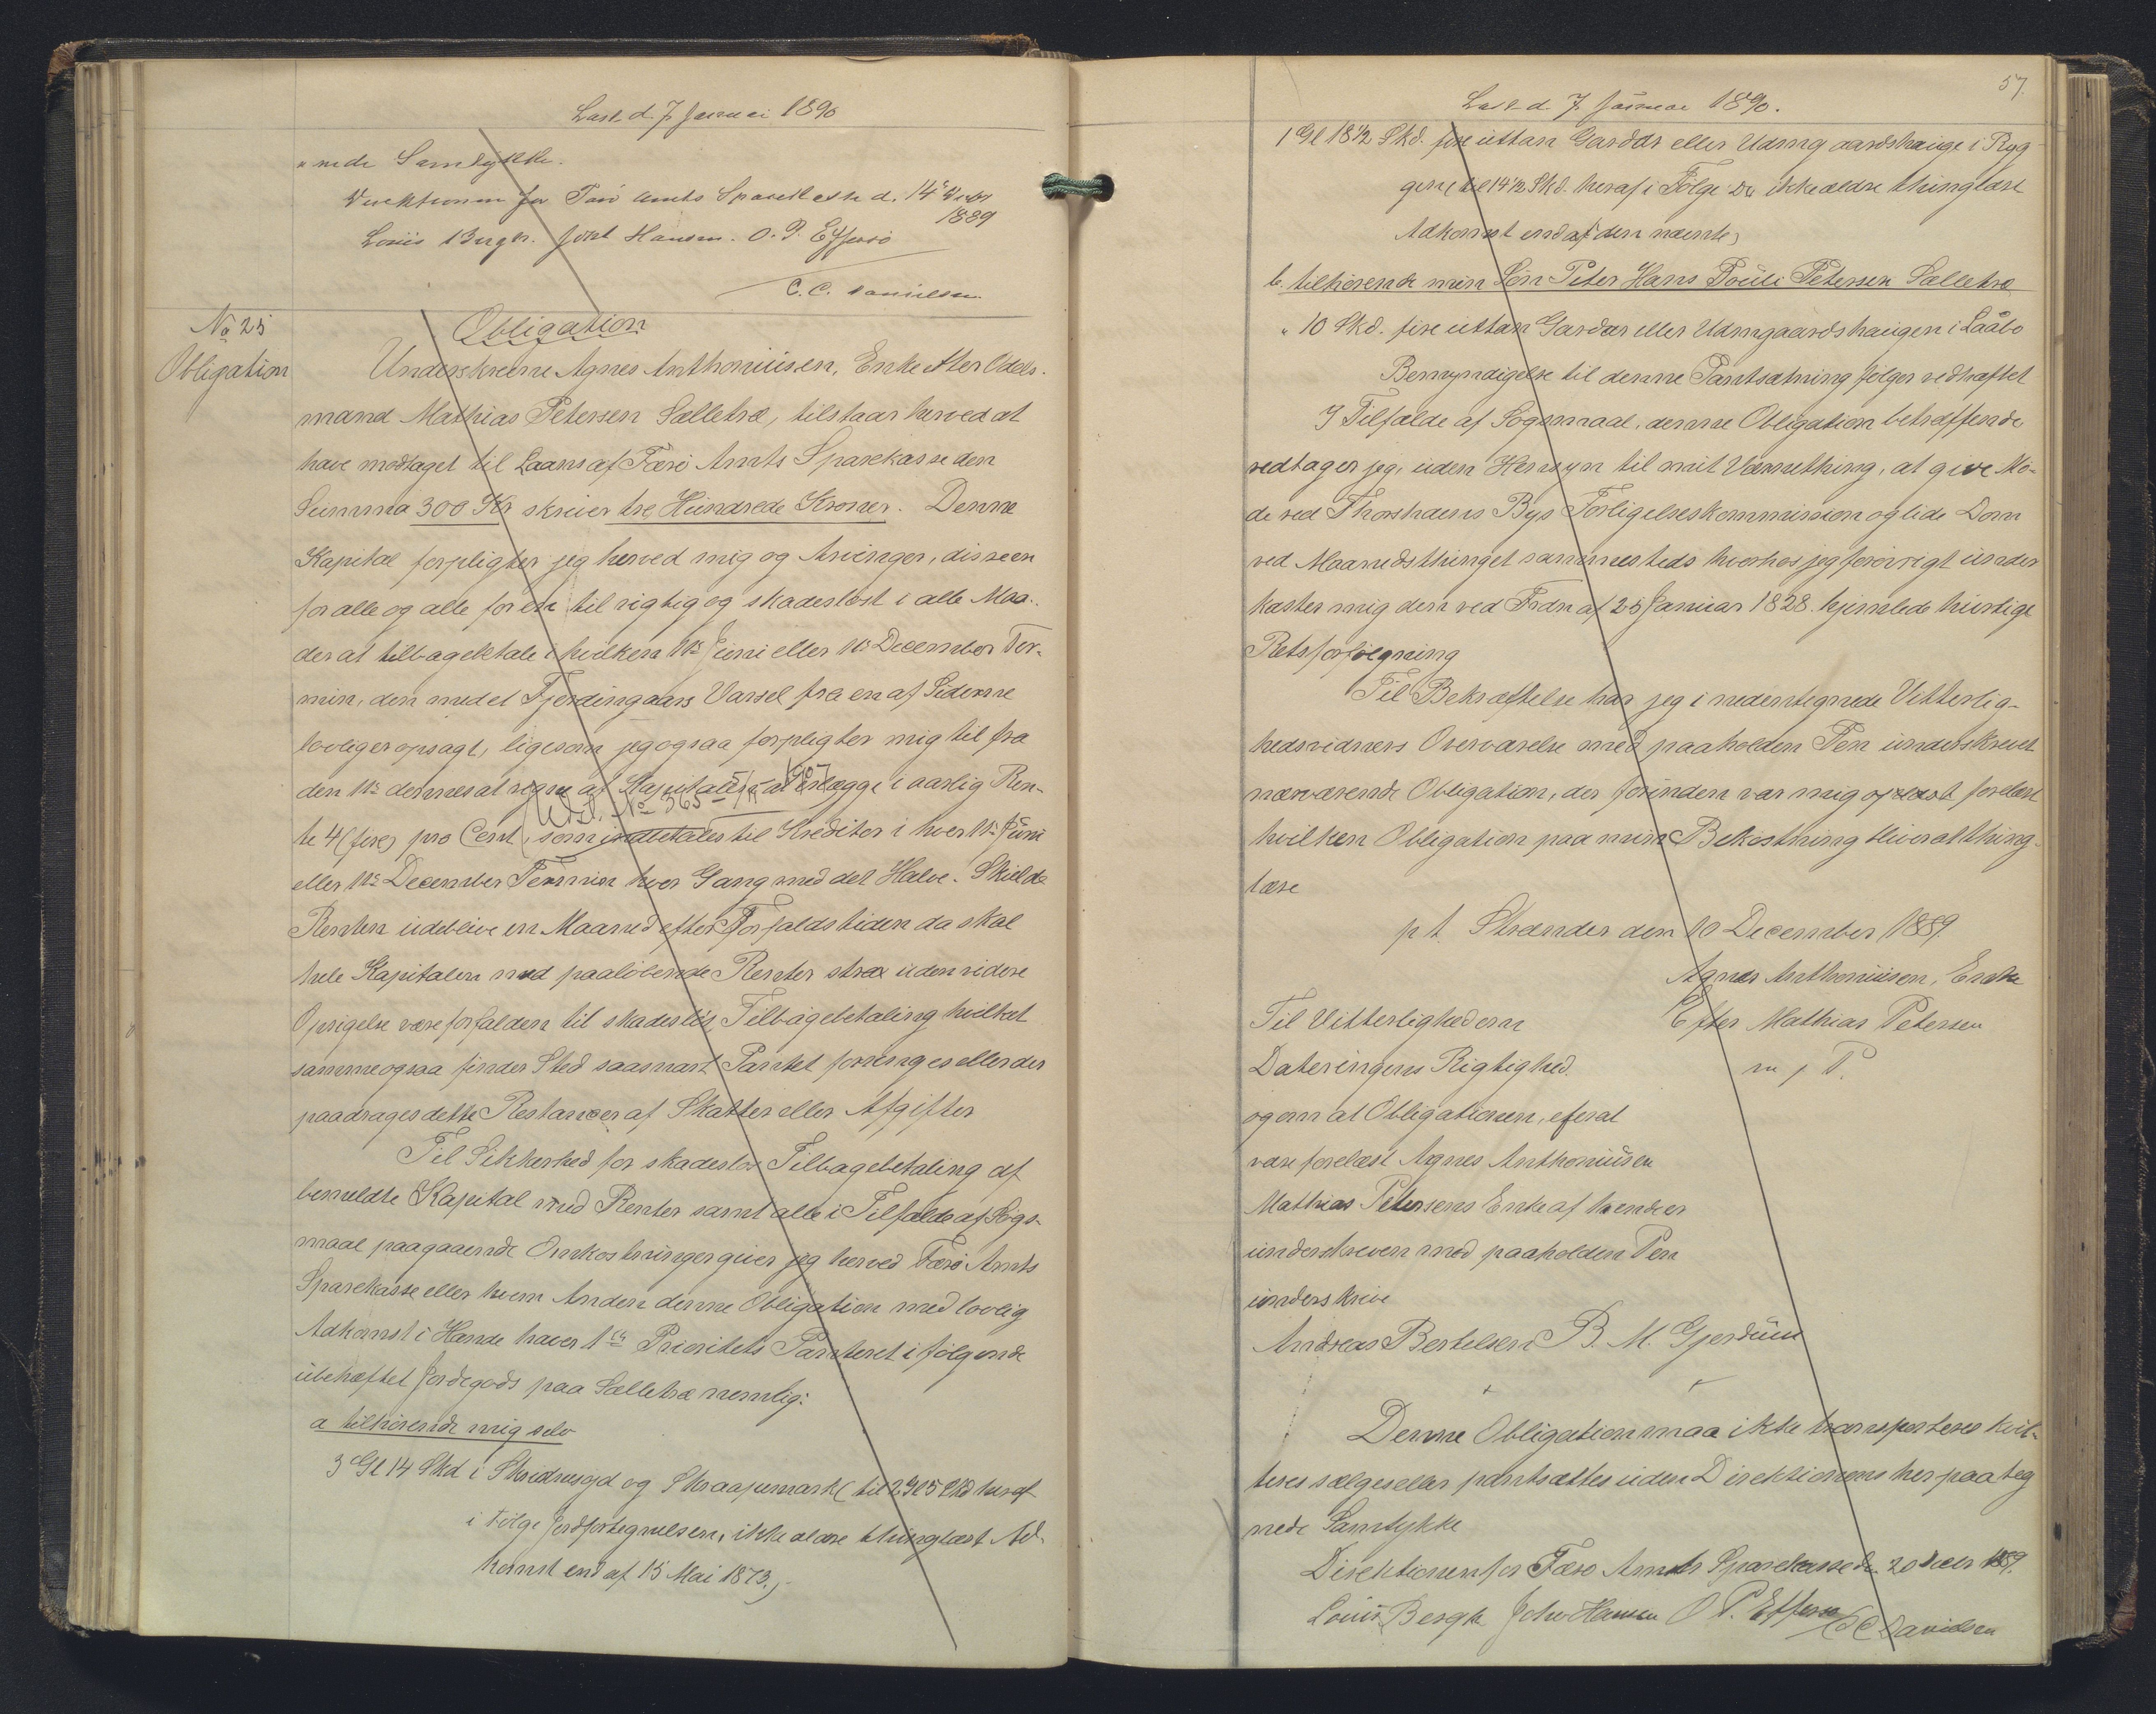 Læst d. 7 Januar 1890
"nede Samtykke.
Direktionen for Færö Amts Sparekasse d. 14de Decbr
1889
Louis Bergh. Joh Hansen. O. P. Effersö
C. C. Danielsen
No 25
Obligation
Obligation
Underskrevne Agnes Anthoniusen, Enke efter Odels-
mand Mathias Petersen Selletræ, tilstaar herved at
have modtaget til Laans af Færö Amts Sparekasse den
Summa 300 Kr skriver tre Hundrede Kroner. Denne
Kapital forpligter jeg herved mig og Arvinger, disse en
for alle og alle for en til rigtig og skadeslöst i alle Maa-
der at tilbagebetale i hvilken 11te Juni eller 11te December Ter-
min, den med et Fjerdingaars Varsel fra en af Siderne
lovliger opsagt, ligesom jeg ogsaa forpligter mig til fra
den 11te dennes at regne af Kapitalen at erlægge i aarlig Ren-
Udsl. No 365
te 4 (fire) pro Cent, som indbetales til Kreditor i hver 11te Juni
eller 11te December Termin hver Gang med det Halve. Skulde
Renten udeblive en Maaned efter Forfaldstiden da skal
hele Kapitalen med paalöbende Renter strax uden videre
Opsigelse være forfalden til skadeslös Tilbagebetaling hvilket
samme ogsaa finder Sted saasnart Pantet forringes eller der
paadrages dette Restancer af Skatter eller Afgifter
Til Sikkerhed for skadeslös Tilbagebetaling af
bemeldte Kapital med Renter samt alle i Tilfælde af Sögs-
maal paagaaende Omkostninger giver jeg herved Færö Amts
Sparekasse eller hvem Anden denne Obligation med lovlig
Adkomst i Hænde haver 1ste Prioritets Panteret i fölgende
übehæftet Jordegods paa Selletræ nemlig:
a tilhörende mig selv
3 Gl 14 Skd i Skridnesgjd og Skraapumark (til 2 Gl 5 Skd heraf
i Fölge Jordfortegnelsen, ikke ældre thinglæst Ad-
komst end af 15 Mai 1873.)
57.
Læst d. 7. Januar 1890.
1 Gl 18 1/2 Skd. fire uttan Gardar eller Udmgaardshauge i Ryg
gene til 14 1/2 Skd. heraf i Fölge De ikke ældre thinglæst
Adkomst end af den nævnte)
b. tilhörende min Sön Peter Hans Pouli Petersen Selletræ
" 10 Skd. fire uttan Gardar eller Udmgaardshaugen i Laabo
Bemyndigelse til denne Pantsætning fölger vedhæftet
I Tilfælde af Sögsmaal, denne Obligation betræffende
vedtager jeg, uden Hensyn til mit Værnething, at give Mö-
de ved Thorshavns Bys Forligelseskommission og lide Dom
ved Maanedsthinget sammesteds hvorhos jeg forövrigt under
kaster mig den ved Frdn af 25 Januar 1828 hjemlede hurtige
Retsforfölgning
Til Bekræftelse har jeg i nedentegnede Vitterlig-
hedsvidners Overværelse med paaholden Pen underskrevet
nærværende Obligation, der forinden var mig oplæst forelæst
hvilken Obligation paa min Bekostning bliver at thing-
læse
p. t. Strænder den 10 December 1889.
Agnes Anthoniusen, Enke
Til Vitterlighed om
Efter Mathias Petersen
Dateringens Rigtighed.
m. p. P.
og om at Obligationen, efter at
være forelæst Agnes Anthoniusen
Mathias Petersens Enke af hende er
underskreven med paaholden Pen
underskrive
Andreas Bertelsen B. M. Gjerdum
Denne Obligation maa ikke transporteres kvit-
teres sælges eller pantsættes uden Direktionens her paa teg
nede Samtykke
Direktionen for Færö Amts Sparekasse d. 20 Decbr 1889.
Louis Bergh Joh. Hansen O P. Effersö C C Danielsen